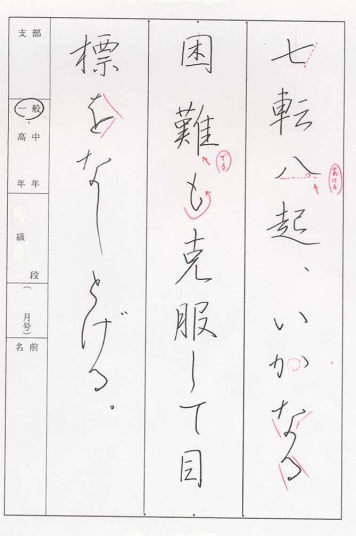 七転八起、いかなる
困難も克服して目
標をなしとげる。
あける
でる
支部
一般
高中
年年
級
段
(月号)
名前